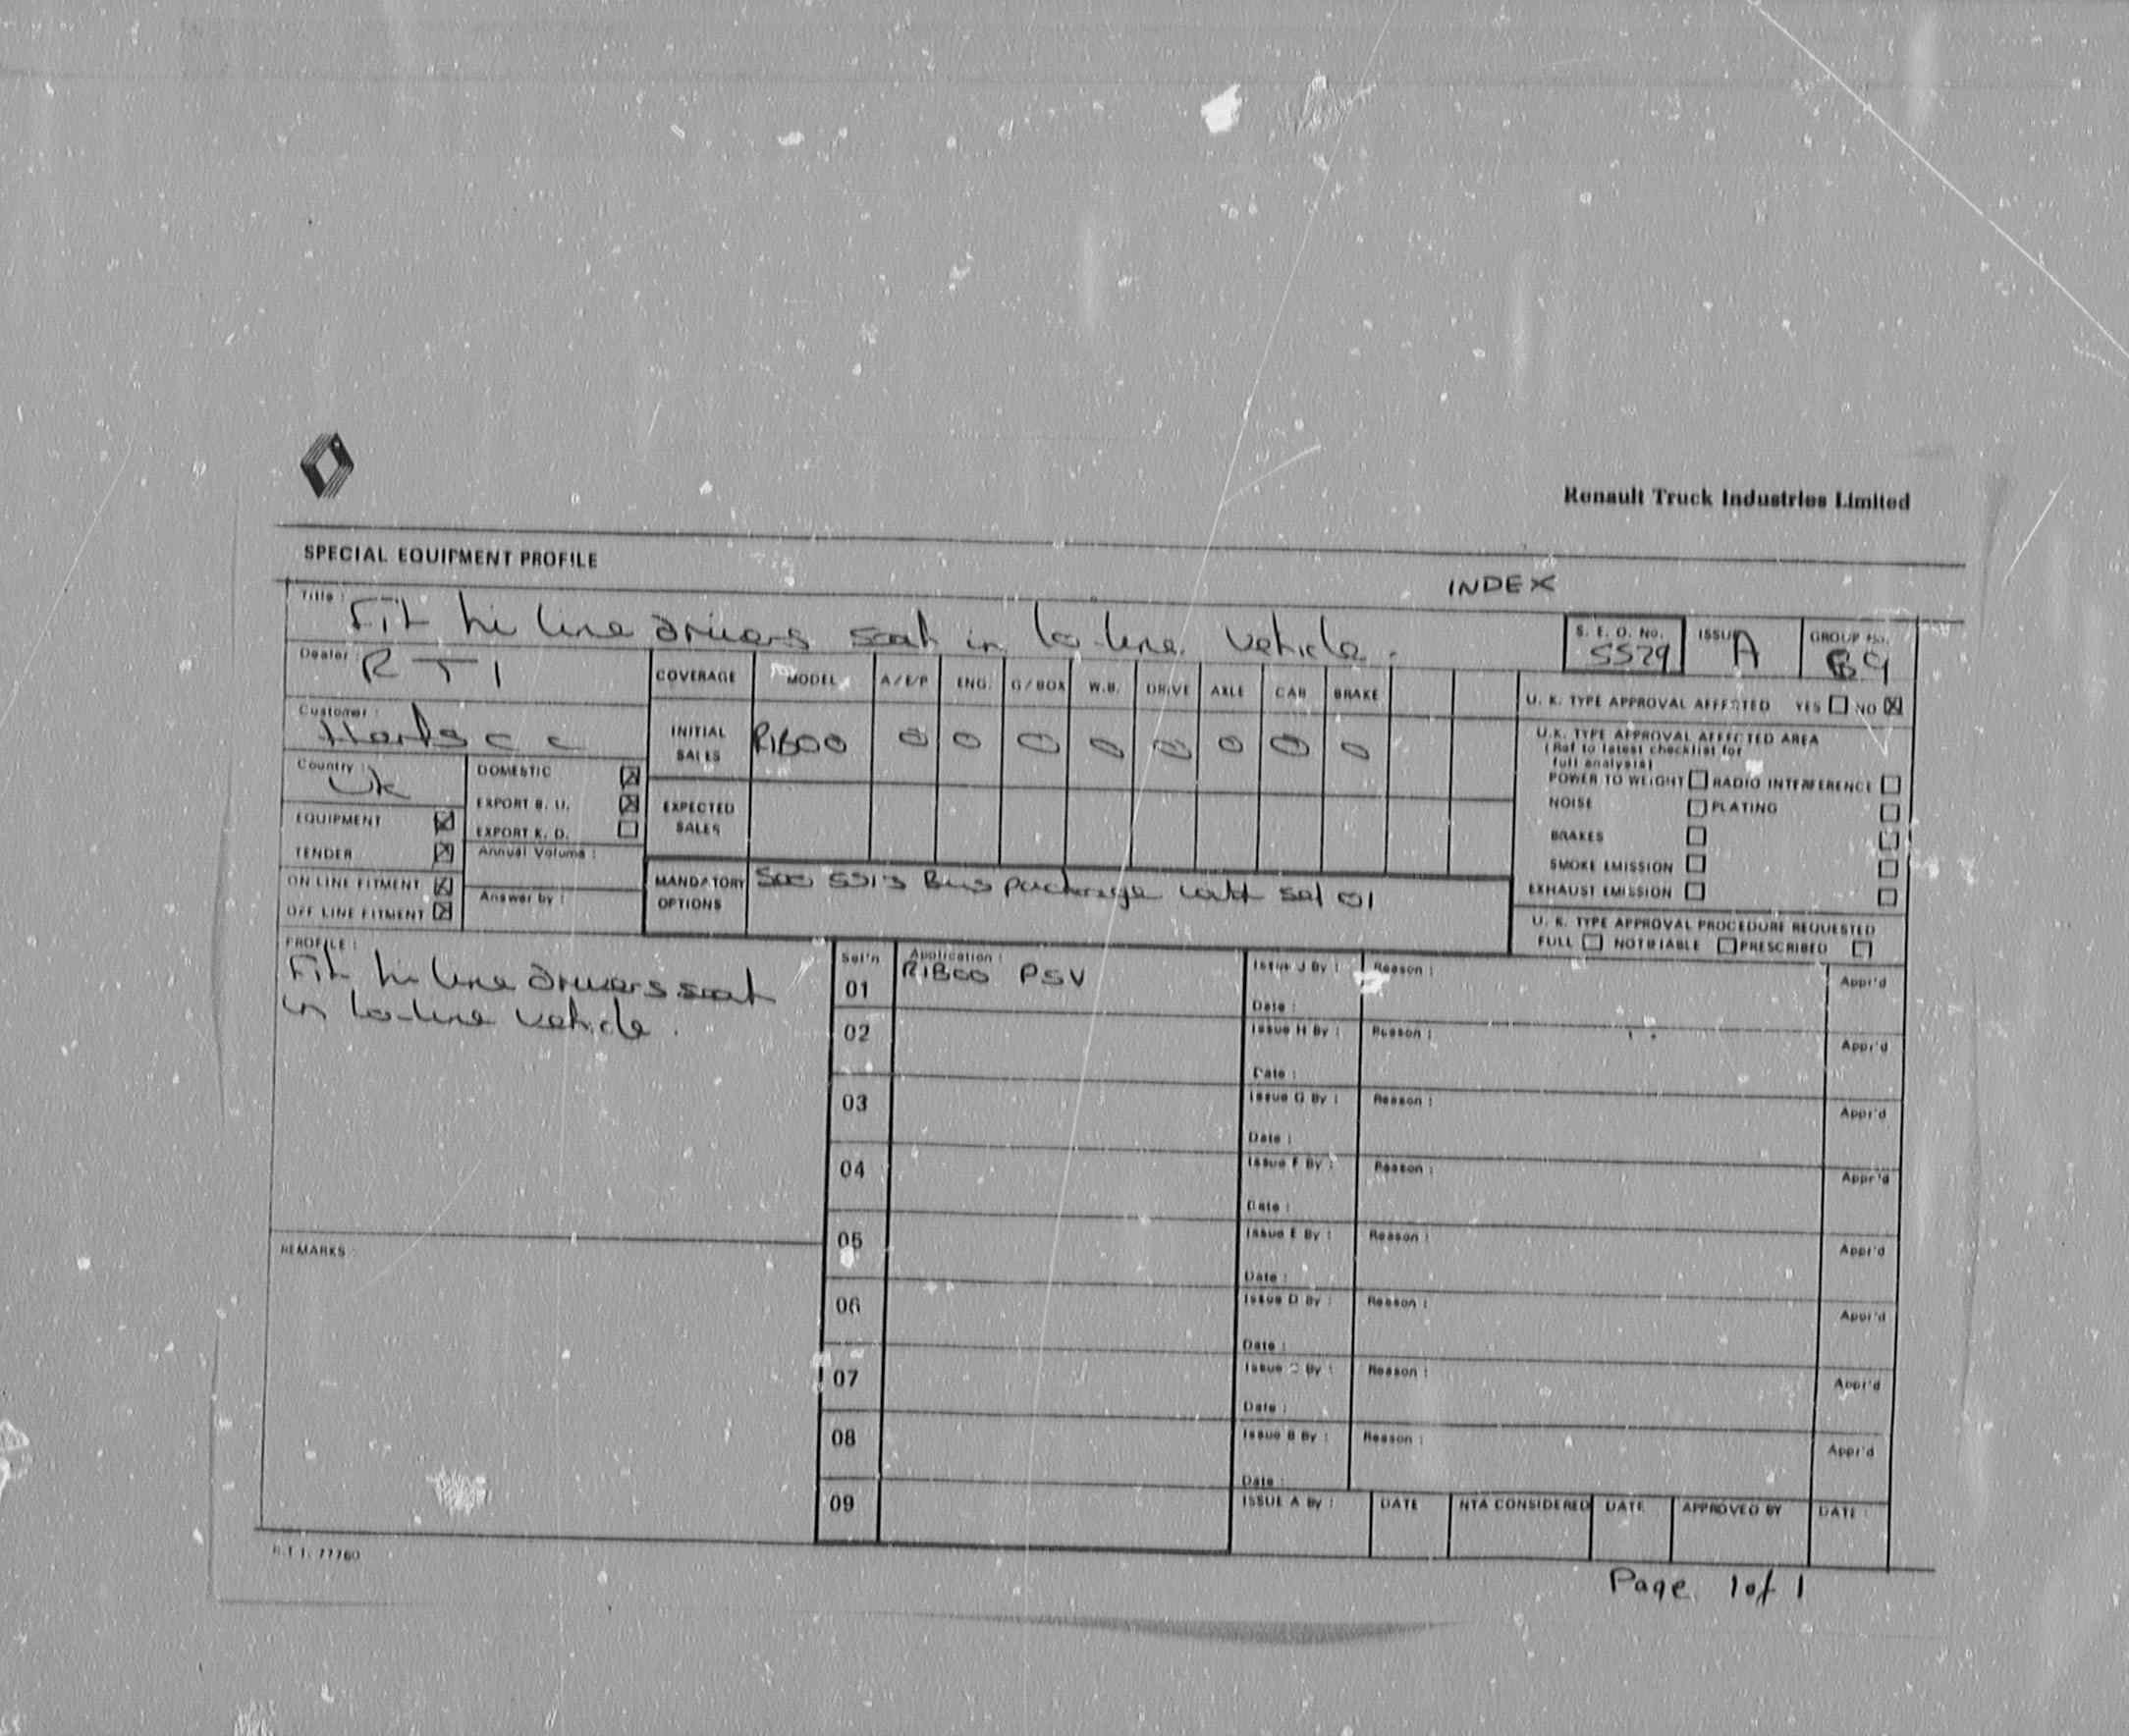 Renault Truck Industries Limited
SPECIAL EQUIPMENT PROFILE
INDEX
Title :
Fit hi line drivers seat in lo-line vehicle.
S. E. O. No.
5529
ISSUE
A
GROUP No.
B9
Dealer
RTI
Customer :
Herts c c
Country :
Uk
DOMESTIC
EXPORT B. U.
EXPORT K. D.
Annual Volume :
Answer by :
EQUIPMENT
TENDER
ON LINE FITMENT
OFF LINE FITMENT
COVERAGE MODEL A/E/P ENG. G/BOX W.B. DRIVE AXLE CAB BRAKE
INITIAL SALES
0 0 0 0 0 0 0 0
EXPECTED SALES
MANDATORY OPTIONS
Bus package sel 01
U. K. TYPE APPROVAL AFFECTED YES NO
U.K. TYPE APPROVAL AFFECTED AREA
(Ref to latest checklist for
full analysis)
POWER TO WEIGHT RADIO INTERFERENCE
NOISE PLATING
BRAKES
SMOKE EMISSION
EXHAUST EMISSION
U. K. TYPE APPROVAL PROCEDURE REQUESTED
FULL NOTIFIABLE PRESCRIBED
PROFILE :
Fit hi line drivers seat
in lo-line vehicle.
REMARKS :
Sel'n Application :
01 PSV
02
03
04
05
06
07
08
09
Issue J By : Reason : Appr'd
Date :
Issue H By : Reason : Appr'd
Date :
Issue G By : Reason : Appr'd
Date :
Issue F By : Reason : Appr'd
Date :
Issue E By : Reason : Appr'd
Date :
Issue D By : Reason : Appr'd
Date :
Issue C By : Reason : Appr'd
Date :
Issue B By : Reason : Appr'd
Date :
ISSUE A By : DATE NTA CONSIDERED DATE APPROVED BY DATE :
R.T.I. 77760
Page 1 of 1